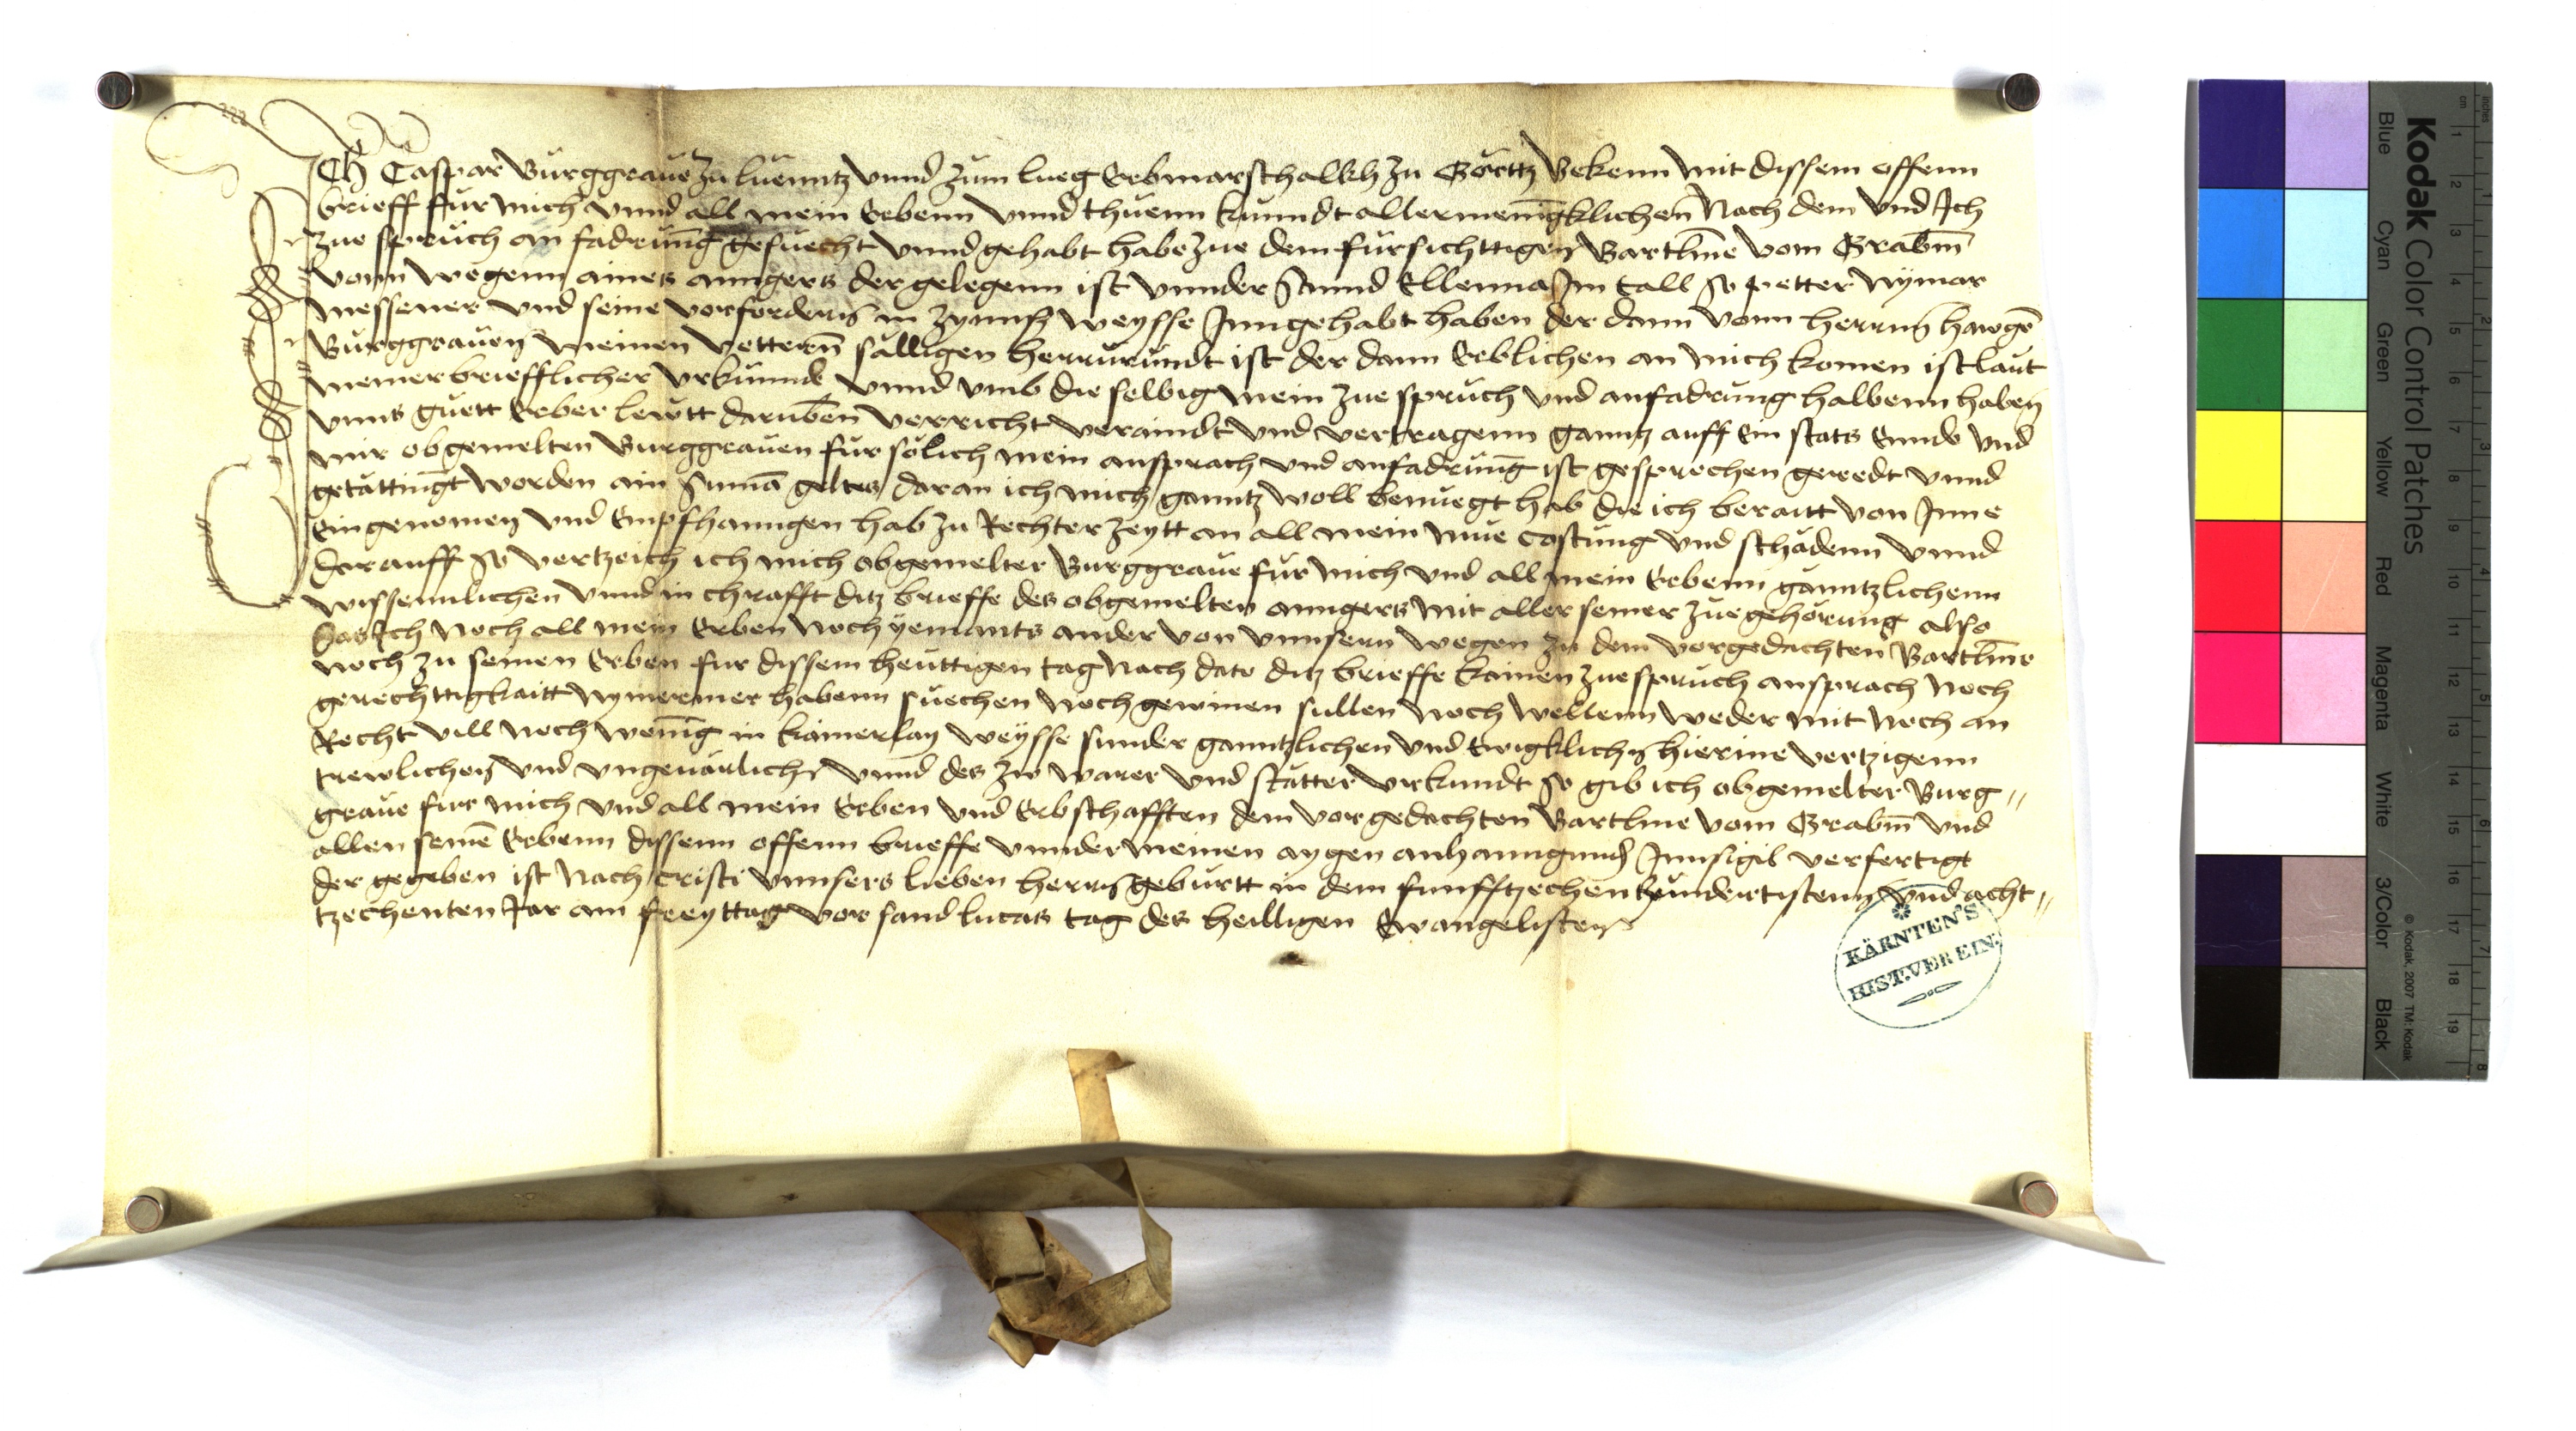 Ich Caspar Burggraue zu luenntz vnnd zum lueg Erbmarschalkh zu Görttz Bekenn mit dissem offenn
brieff fur mich vnnd all mein Erbenn vnnd thuenn kunndt allermenigklichen Nach dem vnd Ich
zue spruch an fadrung gesuecht vnnd gehabt habe zue dem fursichttigen Bartlme vom Grabm
vonn wegenn aines anngers der gelegenn ist vnnder Sannd Ellenna Im tall so petter Nymar
messener vnd seine vorfordern in Zynnss weysse Inngehabt haben der dann vonn herrnn hawgn
Burggrauen meinen vettern sälligen herrurundt ist der dann Erblichen an mich komen ist laut
meiner briefflicher vrkunnde vnnd vmb die selbig mein zue spruch vnd anfadrung halbenn haben
vnns guett Erber lewtt daruben verricht veraindt vnd vertragenn ganntz auff ein stats Ennde vnd
mir obgemelten Burggrauen fur sölich mein ansprach vnd anfadrung ist gesprechen geredt vnnd
getättingt worden ain Suma geltes daran ich mich ganntz woll benuegt hab die ich beraitt von Inne
Eingenomen vnd Empfhanngen hab zu Rechter zeytt an all mein mue costung vnd schadenn vnnd
Darauff so vertzeich ich mich obgemelter Burggraue fur mich vnd all mein Erbenn ganntzlichenn
wissennlichen vnnd in chrafft ditz brieffe des obgemelten anngers mit aller seiner zuegehörung also
Das Ich noch all mein Erben noch yemants ander von vnnsern wegen zu dem vorgedachten Bartlme
noch zu seinen Erben fur dissem heuttigen tag Nach dato ditz brieffe kainen zuespruch ansprach Noch
gerechttigkaitt Nymermer habenn suechen noch gewinen sullen noch wellenn weder mit Noch an
Recht vill noch wenig in kainerlay weysse sunder ganntzlichen vnd Ewigklichn hierine vertzigenn
trewlichen vnd vngeuärlich vnnd des zw warer vnd stätter vrkundt so gib ich obgemelter Burg
graue fur mich vnd all mein Erben vnd Erbschafften dem vorgedachten Bartlme vom Grabm vnd
allen seine Erbenn dissenn offenn brieffe vnnder meinen aygen anhanngund Innsigil verfertigt
der gegeben ist Nach cristi vnnsers lieben herrn geburtt in dem funfftzechen hundertistenn vnd acht
tzechenten Jar am freyttag vor sand lucas tag des heilligen Ewangelisten
KÄRNTEN'S
HIST. VEREIN.
Kodak Color Control Patches
Blue Cyan Green Yellow Red Magenta White 3/Color Black
© Kodak, 2007 TM: Kodak
inches 1 2 3 4 5 6 7 8
cm 1 2 3 4 5 6 7 8 9 10 11 12 13 14 15 16 17 18 19